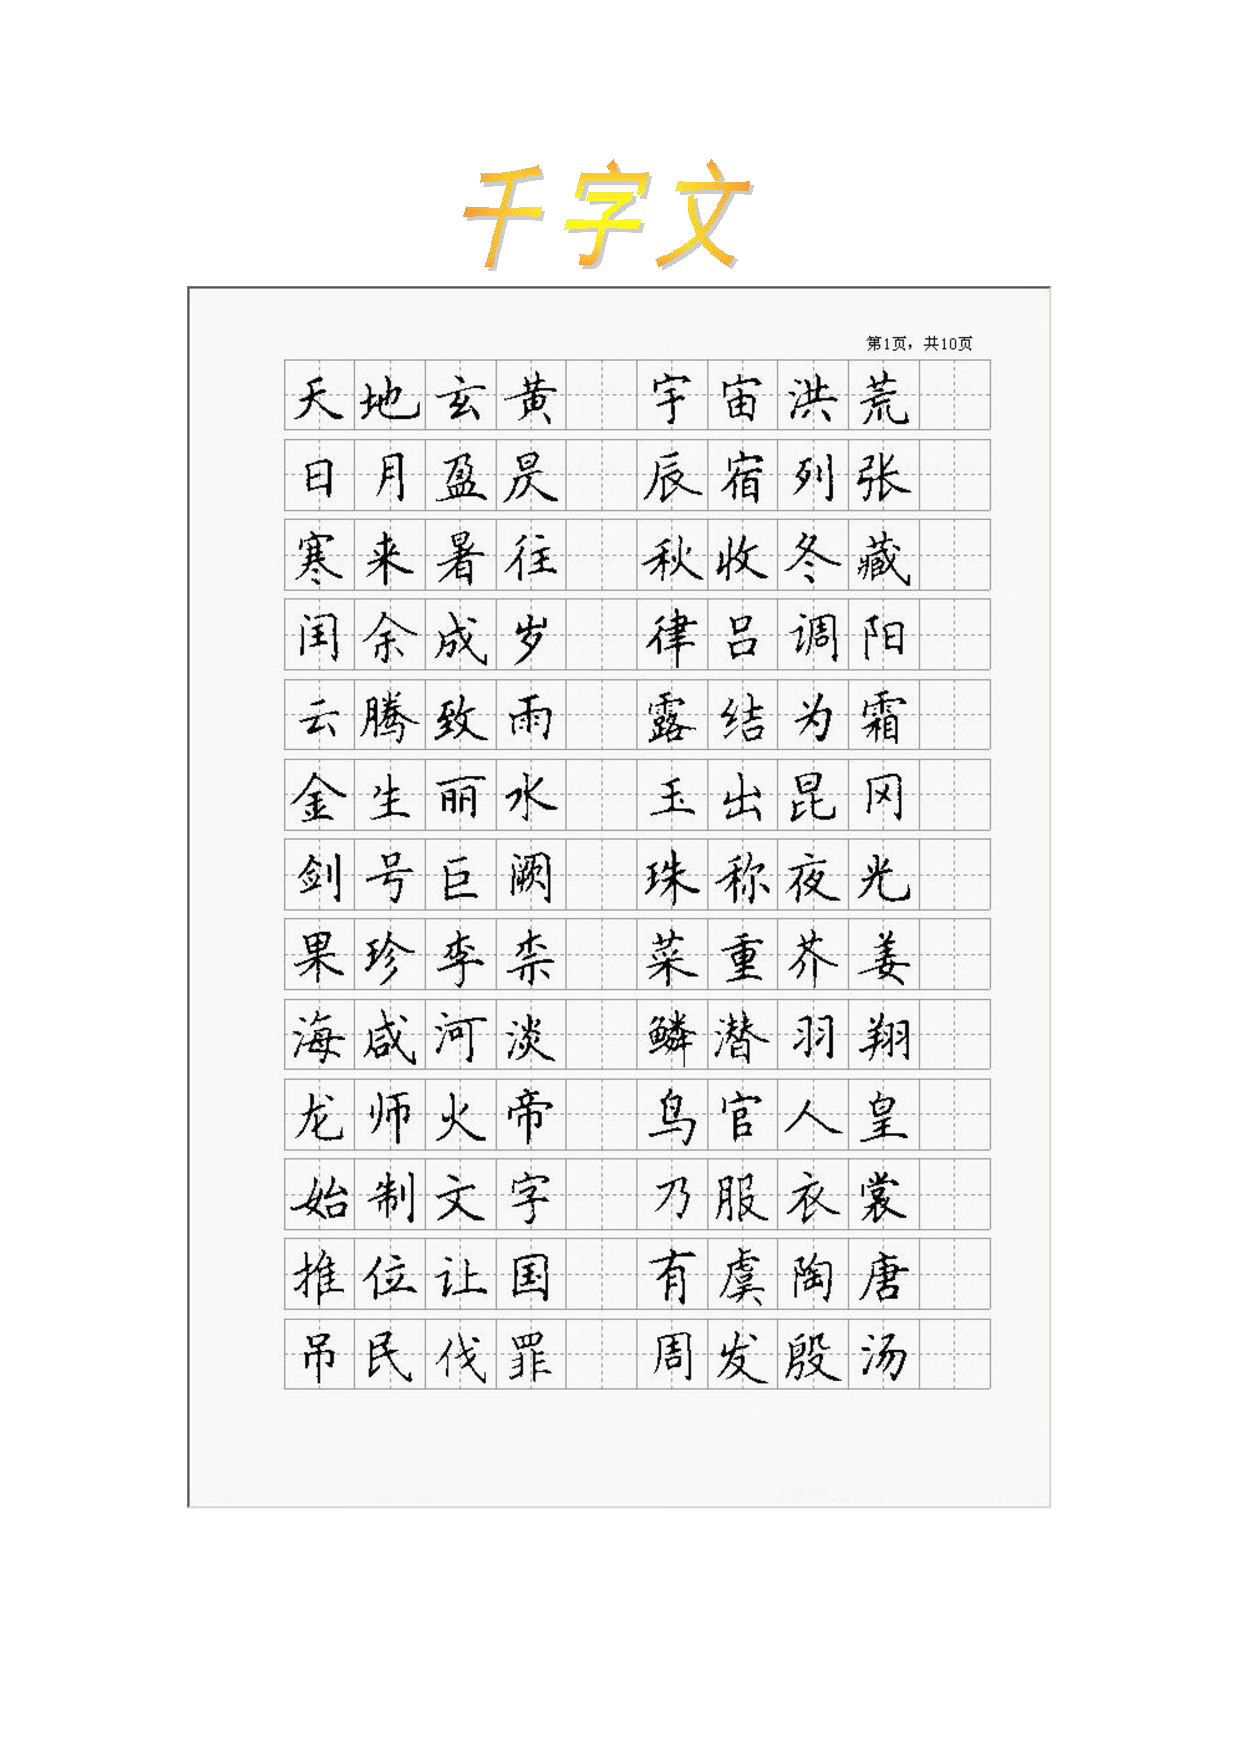 千字文
第1页，共10页
天地玄黄 宇宙洪荒
日月盈昃 辰宿列张
寒来暑往 秋收冬藏
闰余成岁 律吕调阳
云腾致雨 露结为霜
金生丽水 玉出昆冈
剑号巨阙 珠称夜光
果珍李柰 菜重芥姜
海咸河淡 鳞潜羽翔
龙师火帝 鸟官人皇
始制文字 乃服衣裳
推位让国 有虞陶唐
吊民伐罪 周发殷汤